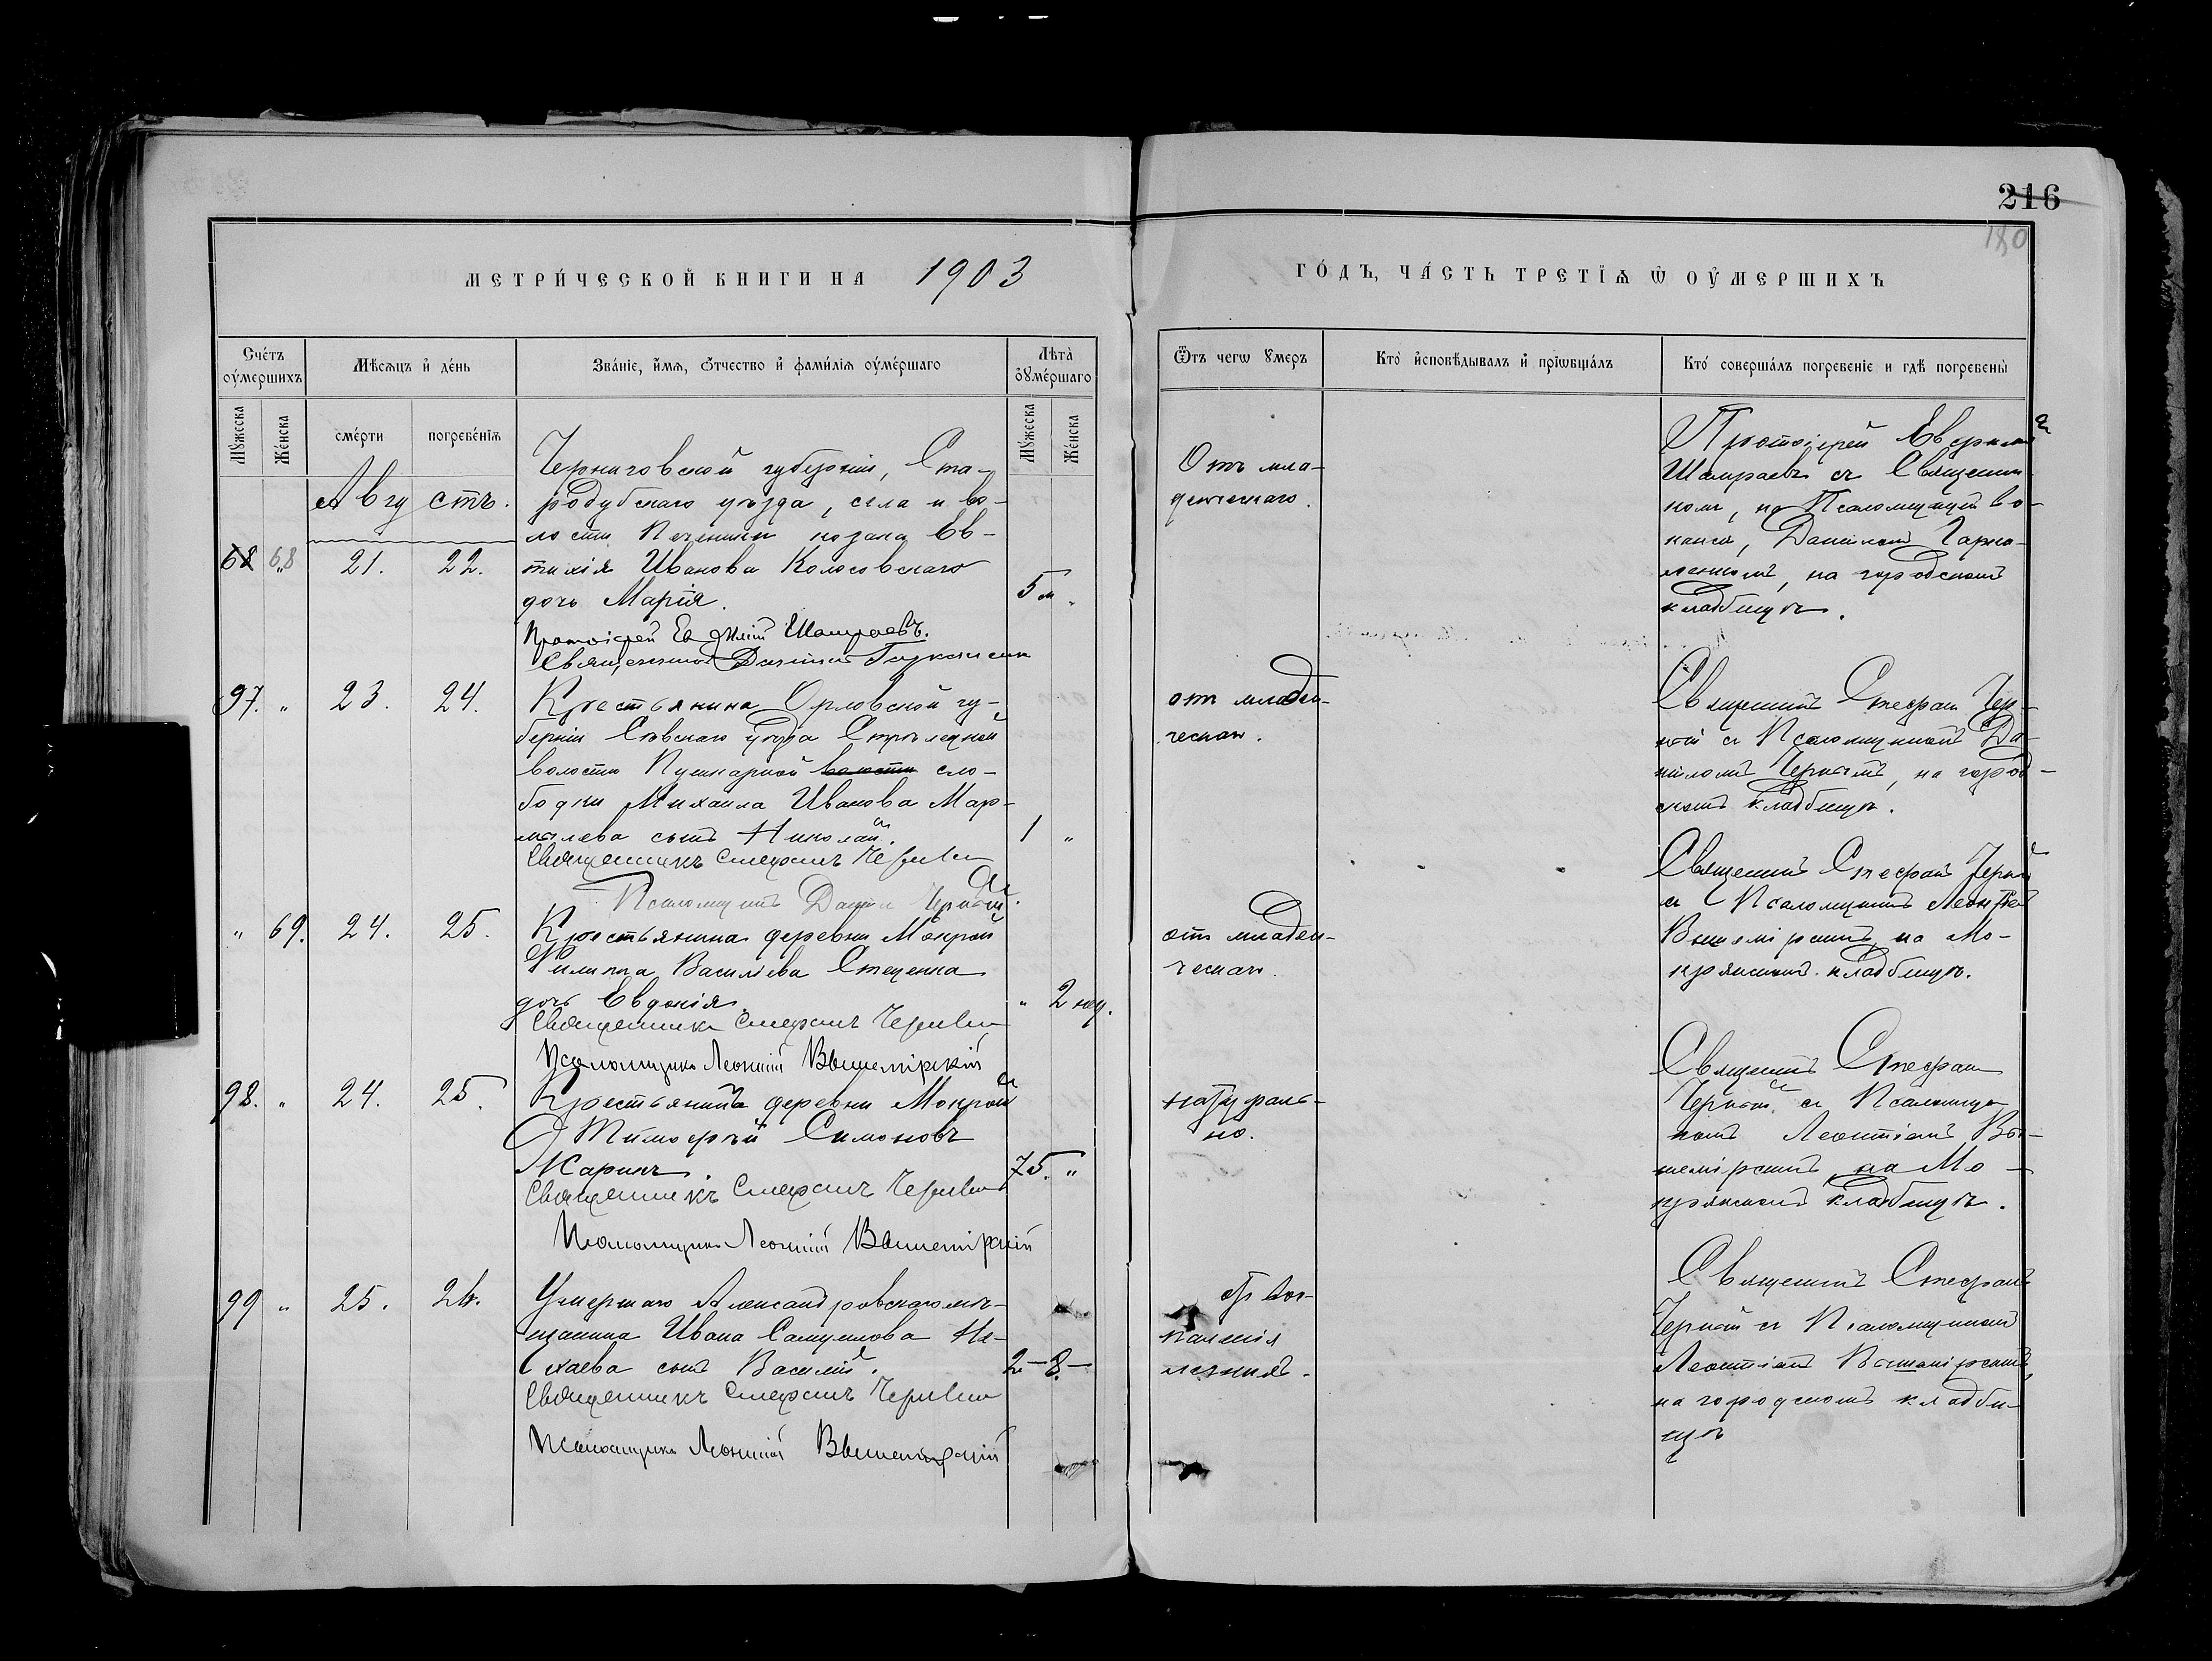 216
180
МЕТРИ́ЧЕСКОЙ КНИГИ НА 1903
ГО́ДЪ, ЧА́СТЬ ТРЕТІѦ Ѡ ОУ҆МЕРШИХЪ
Сче́тъ оу҆ме́ршихъ
Мѣ́сѧцъ и҆ де́нь
Зва́ніе, и҆́мѧ, ѻ҆́тчество и҆ фами́лїѧ оу҆ме́ршаго
Лѣта̀ оу҆ме́ршаго
Ѿ́тъ чегѡ ᲂумеръ
Кто̀ и҆сповѣ́дывалъ и҆ прїѡбща́лъ
Кто̀ соверша́лъ погребе́ніе и гдѣ̀ погребены̀
Му́жеска
Же́нска
сме́рти
погребе́нїѧ
Му́жеска
Же́нска
Августъ.
68 68
21.
22.
Черниговской губерніи, Ста-
родубскаго уѣзда, села и во-
лости Печеники козака Ев-
тихія Иванова Колосовскаго
дочь Марія.
5 м „
Протоіерей Евѳимій Шамраевъ.
Священникъ Даніилъ
Отъ мла-
денческаго.
Протоіерей Евѳимій
Шамраевъ съ Священни-
комъ, на Псаломщицкой ва-
кансіи, Даніиломъ
на городскомъ
кладбищѣ.
97. „
23.
24.
Крестьянина Орловской гу-
берніи Сѣвскаго уѣзда Стрѣлецкой
волости Пушкарной волости сло-
бодки Михаила Иванова Мар-
мылева сынъ Николай.
1 „
Священникъ Стефанъ Черный
Псаломщикъ Даніилъ Черный.
отъ младен-
ческаго.
Священникъ Стефанъ Чер-
ный съ Псаломщикомъ Да-
ніиломъ Чернымъ, на город-
скомъ кладбищѣ.
„ 69.
24.
25.
Крестьянина деревни Мокрой
Филиппа Васильева Стеценка
дочь Евдокія
„ 2 нед.
Священникъ Стефанъ Черный
Псаломщикъ Леонтій Вышемірскій
отъ младен-
ческаго.
Священникъ Стефанъ Черный
съ Псаломщикомъ Леонтіемъ
Вышемірскимъ, на Мо-
крянскомъ кладбищѣ.
98. „
24.
25.
Крестьянинъ деревни Мокрой
Тимоѳей Симоновъ
Жаринъ.
75. „
Священникъ Стефанъ Черный
Псаломщикъ Леонтій Вышемірскій
натураль-
но.
Священникъ Стефанъ
Черный съ Псаломщи-
комъ Леонтіемъ Вы-
шемірскимъ, на Мо-
крянскомъ кладбищѣ.
99 „
25.
26.
Умершаго Александровскаго мѣ-
щанина Ивана Самуилова Не-
хаева сынъ Василій.
2-8-
Священникъ Стефанъ Черный
Псаломщикъ Леонтій Вышемірскій
отъ вос-
паленія
легкихъ.
Священникъ Стефанъ
Черный съ Псаломщикомъ
Леонтіемъ Вышемірскимъ,
на городскомъ кладби-
щѣ